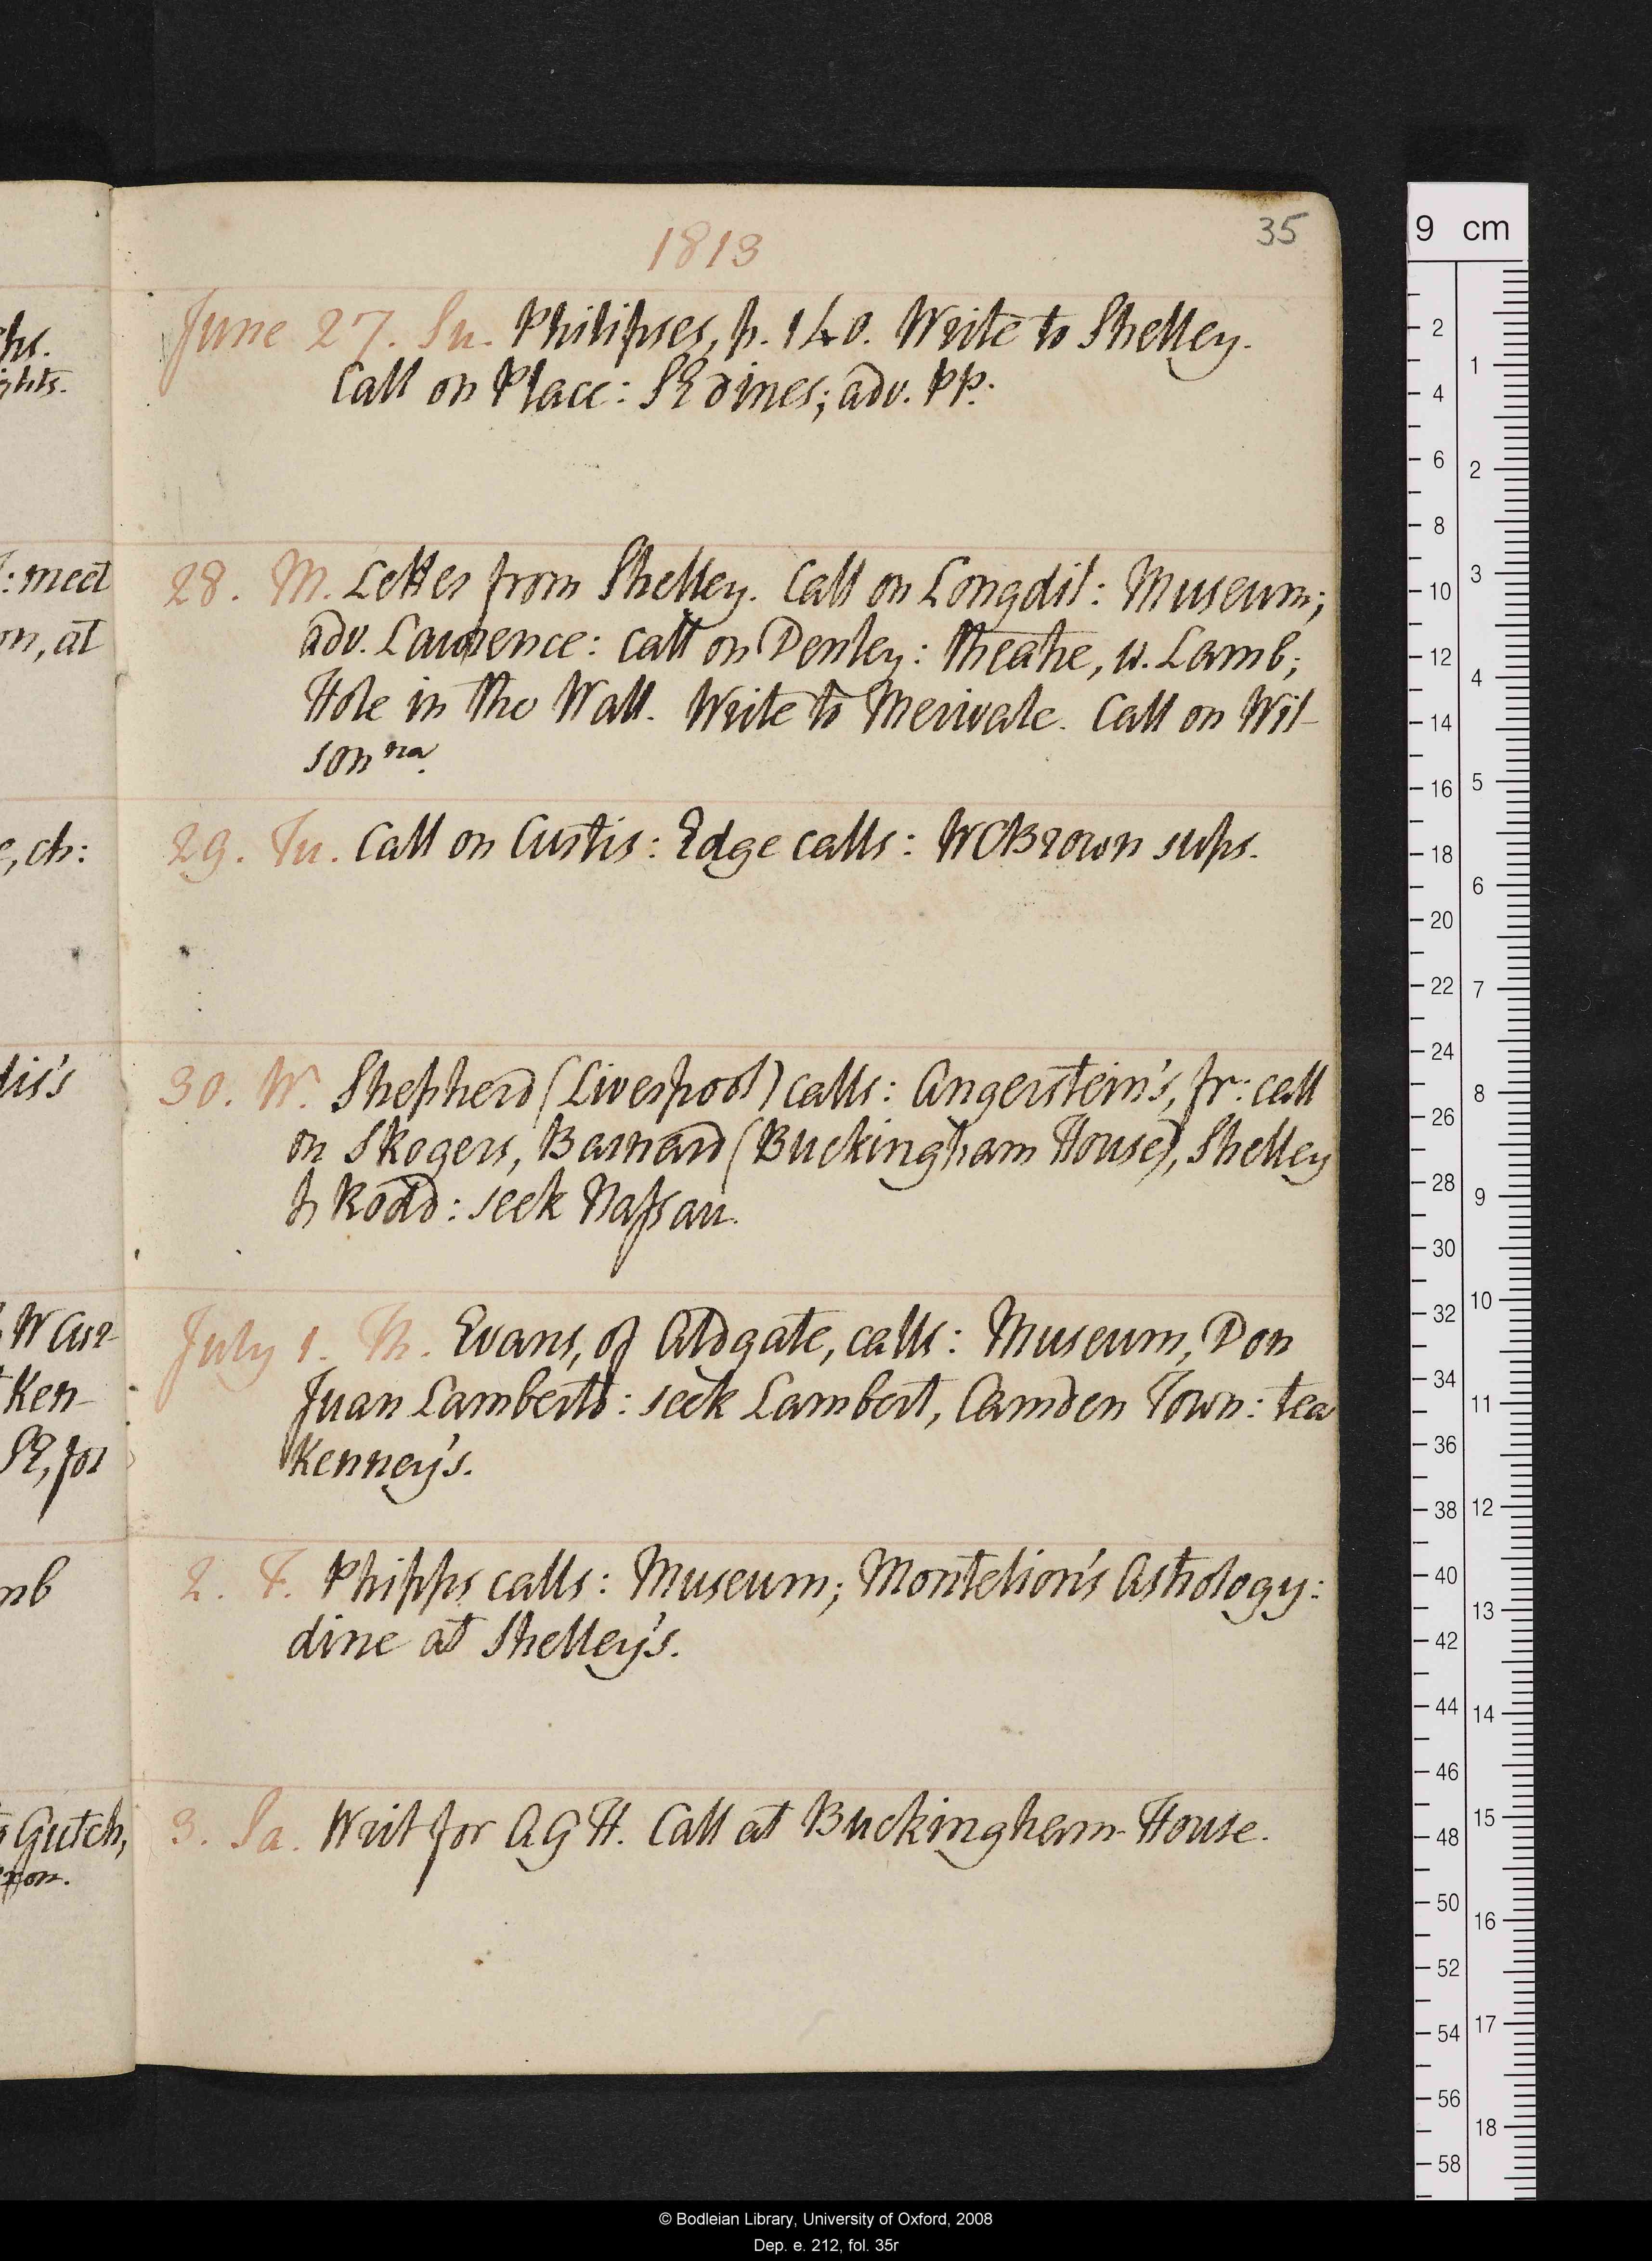 35
1813
June 27. Su. Philipses, p. 140. Write to Shelley.
Call on Place: SE dines; adv. PP.
28. M. Letter from Shelley. Call on Longdil: Museum;
adv. Lawrence: call on Denley: theatre, w. Lamb;
Hole in the Wall. Write to Merivale. Call on Wil-
son na.
29. Tu. Call on Curtis: Edge calls: WCBrown sups.
30. W. Shepherd (Liverpool) calls: Angerstein's, fr: call
on SRogers, Barnard (Buckingham House), Shelley
& Rodd: seek Nassau.
July 1. Th. Evans, of Aldgate, calls: Museum, Don
Juan Lamberto: seek Lambert, Camden Town: tea
Kenney's.
2. F. Phipps calls: Museum; Montelion's Astrology:
dine at Shelley's.
3. Sa. Writ for AGH. Call at Buckingham House.
hs.
ghts.
: meet
on, at
e, ch:
dis's
W Cur-
Ken-
SE, for
mb
Gutch,
xon.
9 cm
2
4
6
8
10
12
14
16
18
20
22
24
26
28
30
32
34
36
38
40
42
44
46
48
50
52
54
56
58
1
2
3
4
5
6
7
8
9
10
11
12
13
14
15
16
17
18
© Bodleian Library, University of Oxford, 2008
Dep. e. 212, fol. 35r